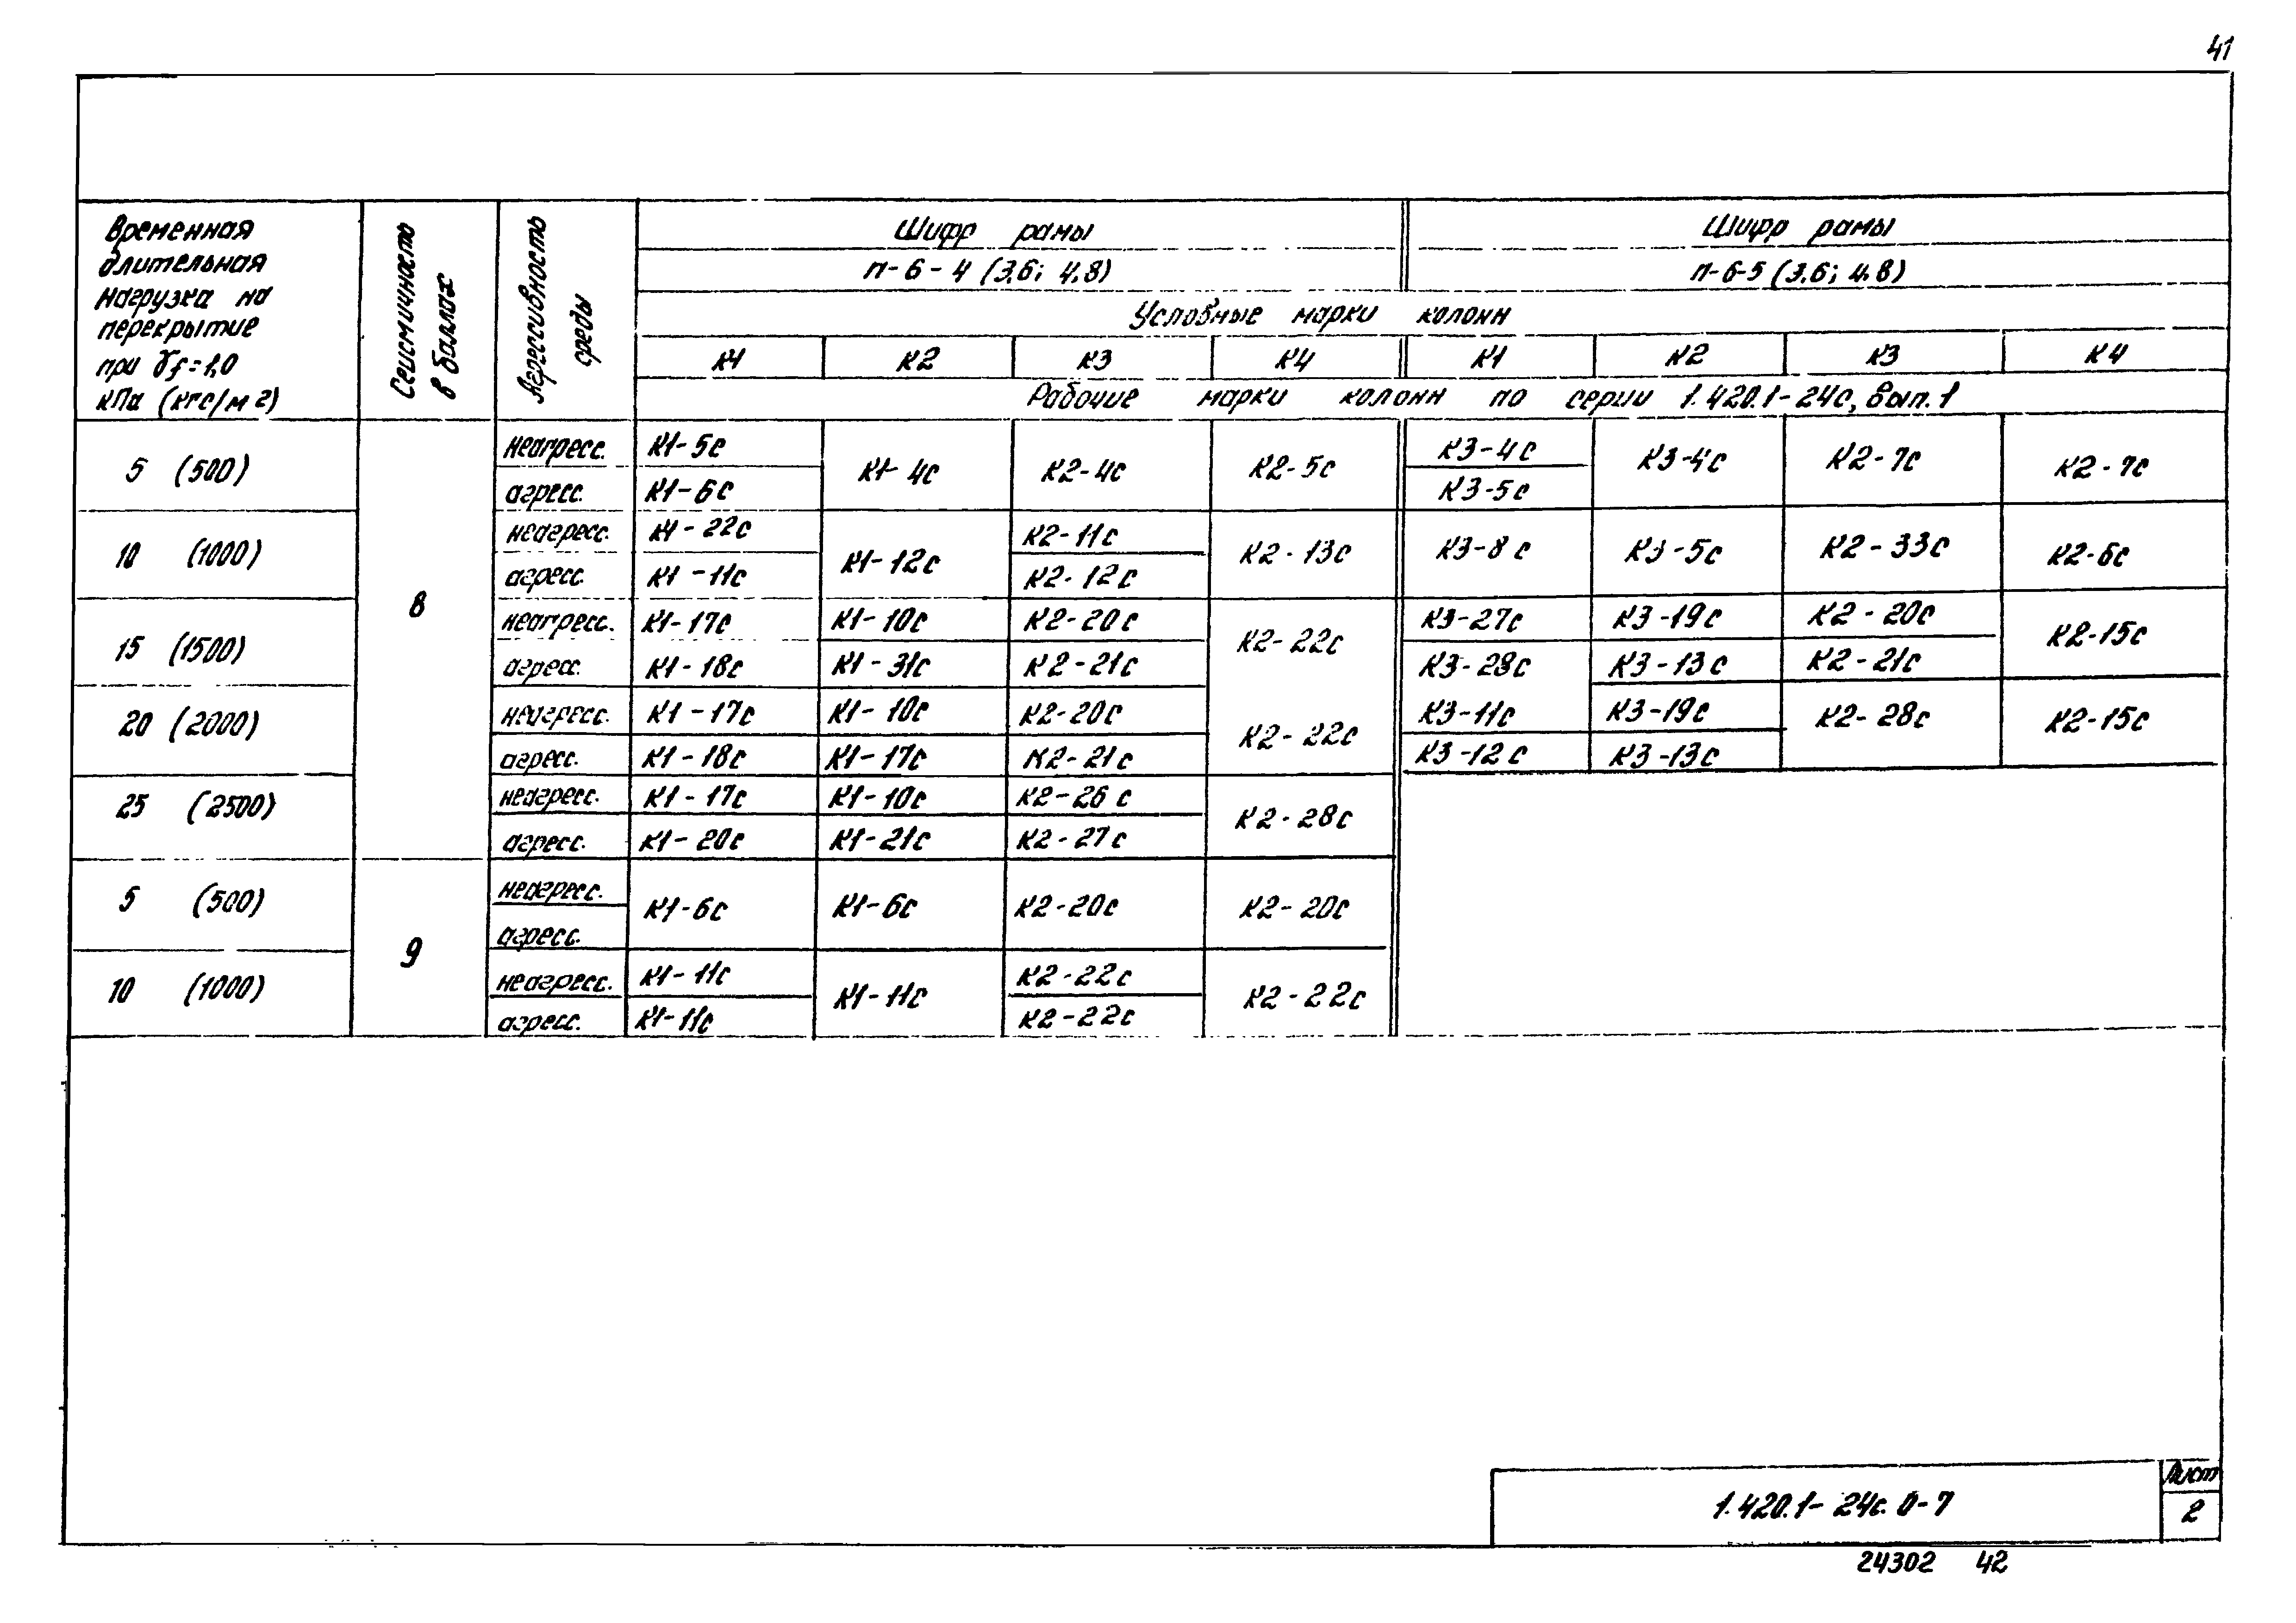 41
Временная длительная нагрузка на перекрытие при γf=1,0 кПа (кгс/м2)
Сейсмичность в баллах
Агрессивность среды
Шифр рамы
Шифр рамы
п-6-4 (3,6; 4,8)
п-6-5 (3,6; 4,8)
Условные марки колонн
К1 К2 К3 К4 К1 К2 К3 К4
Рабочие марки колонн по серии 1.420.1-24с, вып. 1
5 (500) 8 неагресс. К1-5с К1-4с К2-4с К2-5с К3-4с К3-4с К2-7с К2-7с
агресс. К1-6с К3-5с
10 (1000) неагресс. К1-22с К1-12с К2-11с К2-13с К3-8с К3-5с К2-33с К2-6с
агресс. К1-11с К2-12с
15 (1500) неагресс. К1-17с К1-10с К2-20с К2-22с К3-27с К3-19с К2-20с К2-15с
агресс. К1-18с К1-31с К2-21с К3-28с К3-13с К2-21с
20 (2000) неагресс. К1-17с К1-10с К2-20с К2-22с К3-11с К3-19с К2-28с К2-15с
агресс. К1-18с К1-17с К2-21с К3-12с К3-13с
25 (2500) неагресс. К1-17с К1-10с К2-26с К2-28с
агресс. К1-20с К1-21с К2-27с
5 (500) 9 неагресс. К1-6с К1-6с К2-20с К2-20с
агресс.
10 (1000) неагресс. К1-11с К1-11с К2-22с К2-22с
агресс. К1-11с К2-22с
1.420.1-24с.0-7
Лист
2
24302 42